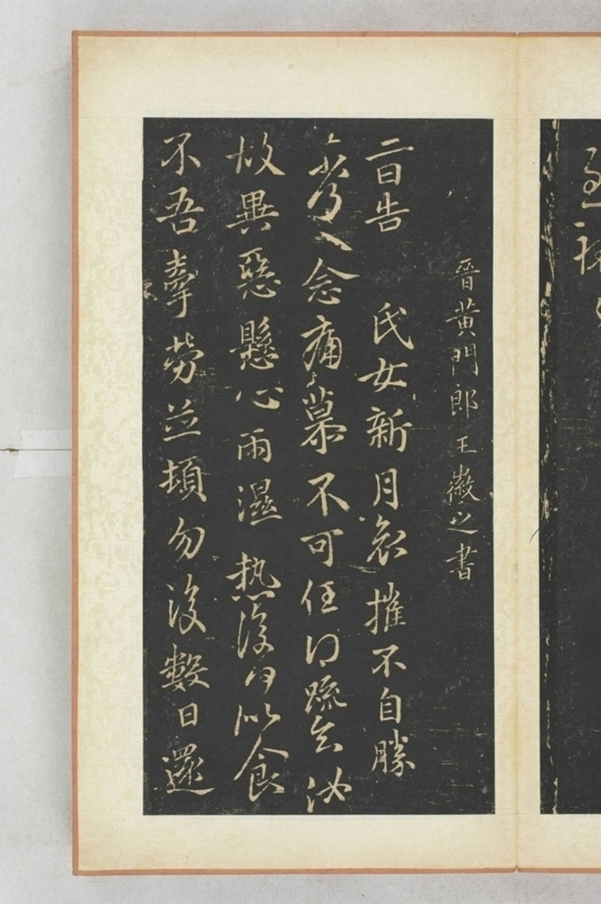 晉黃門郎王徽之書
二日告 氏女新月哀摧不自勝
奈何〻念痛〻慕不可任得疏知汝
故異惡懸心雨濕熱復何似食
不吾牽勞並頓勿復數日還